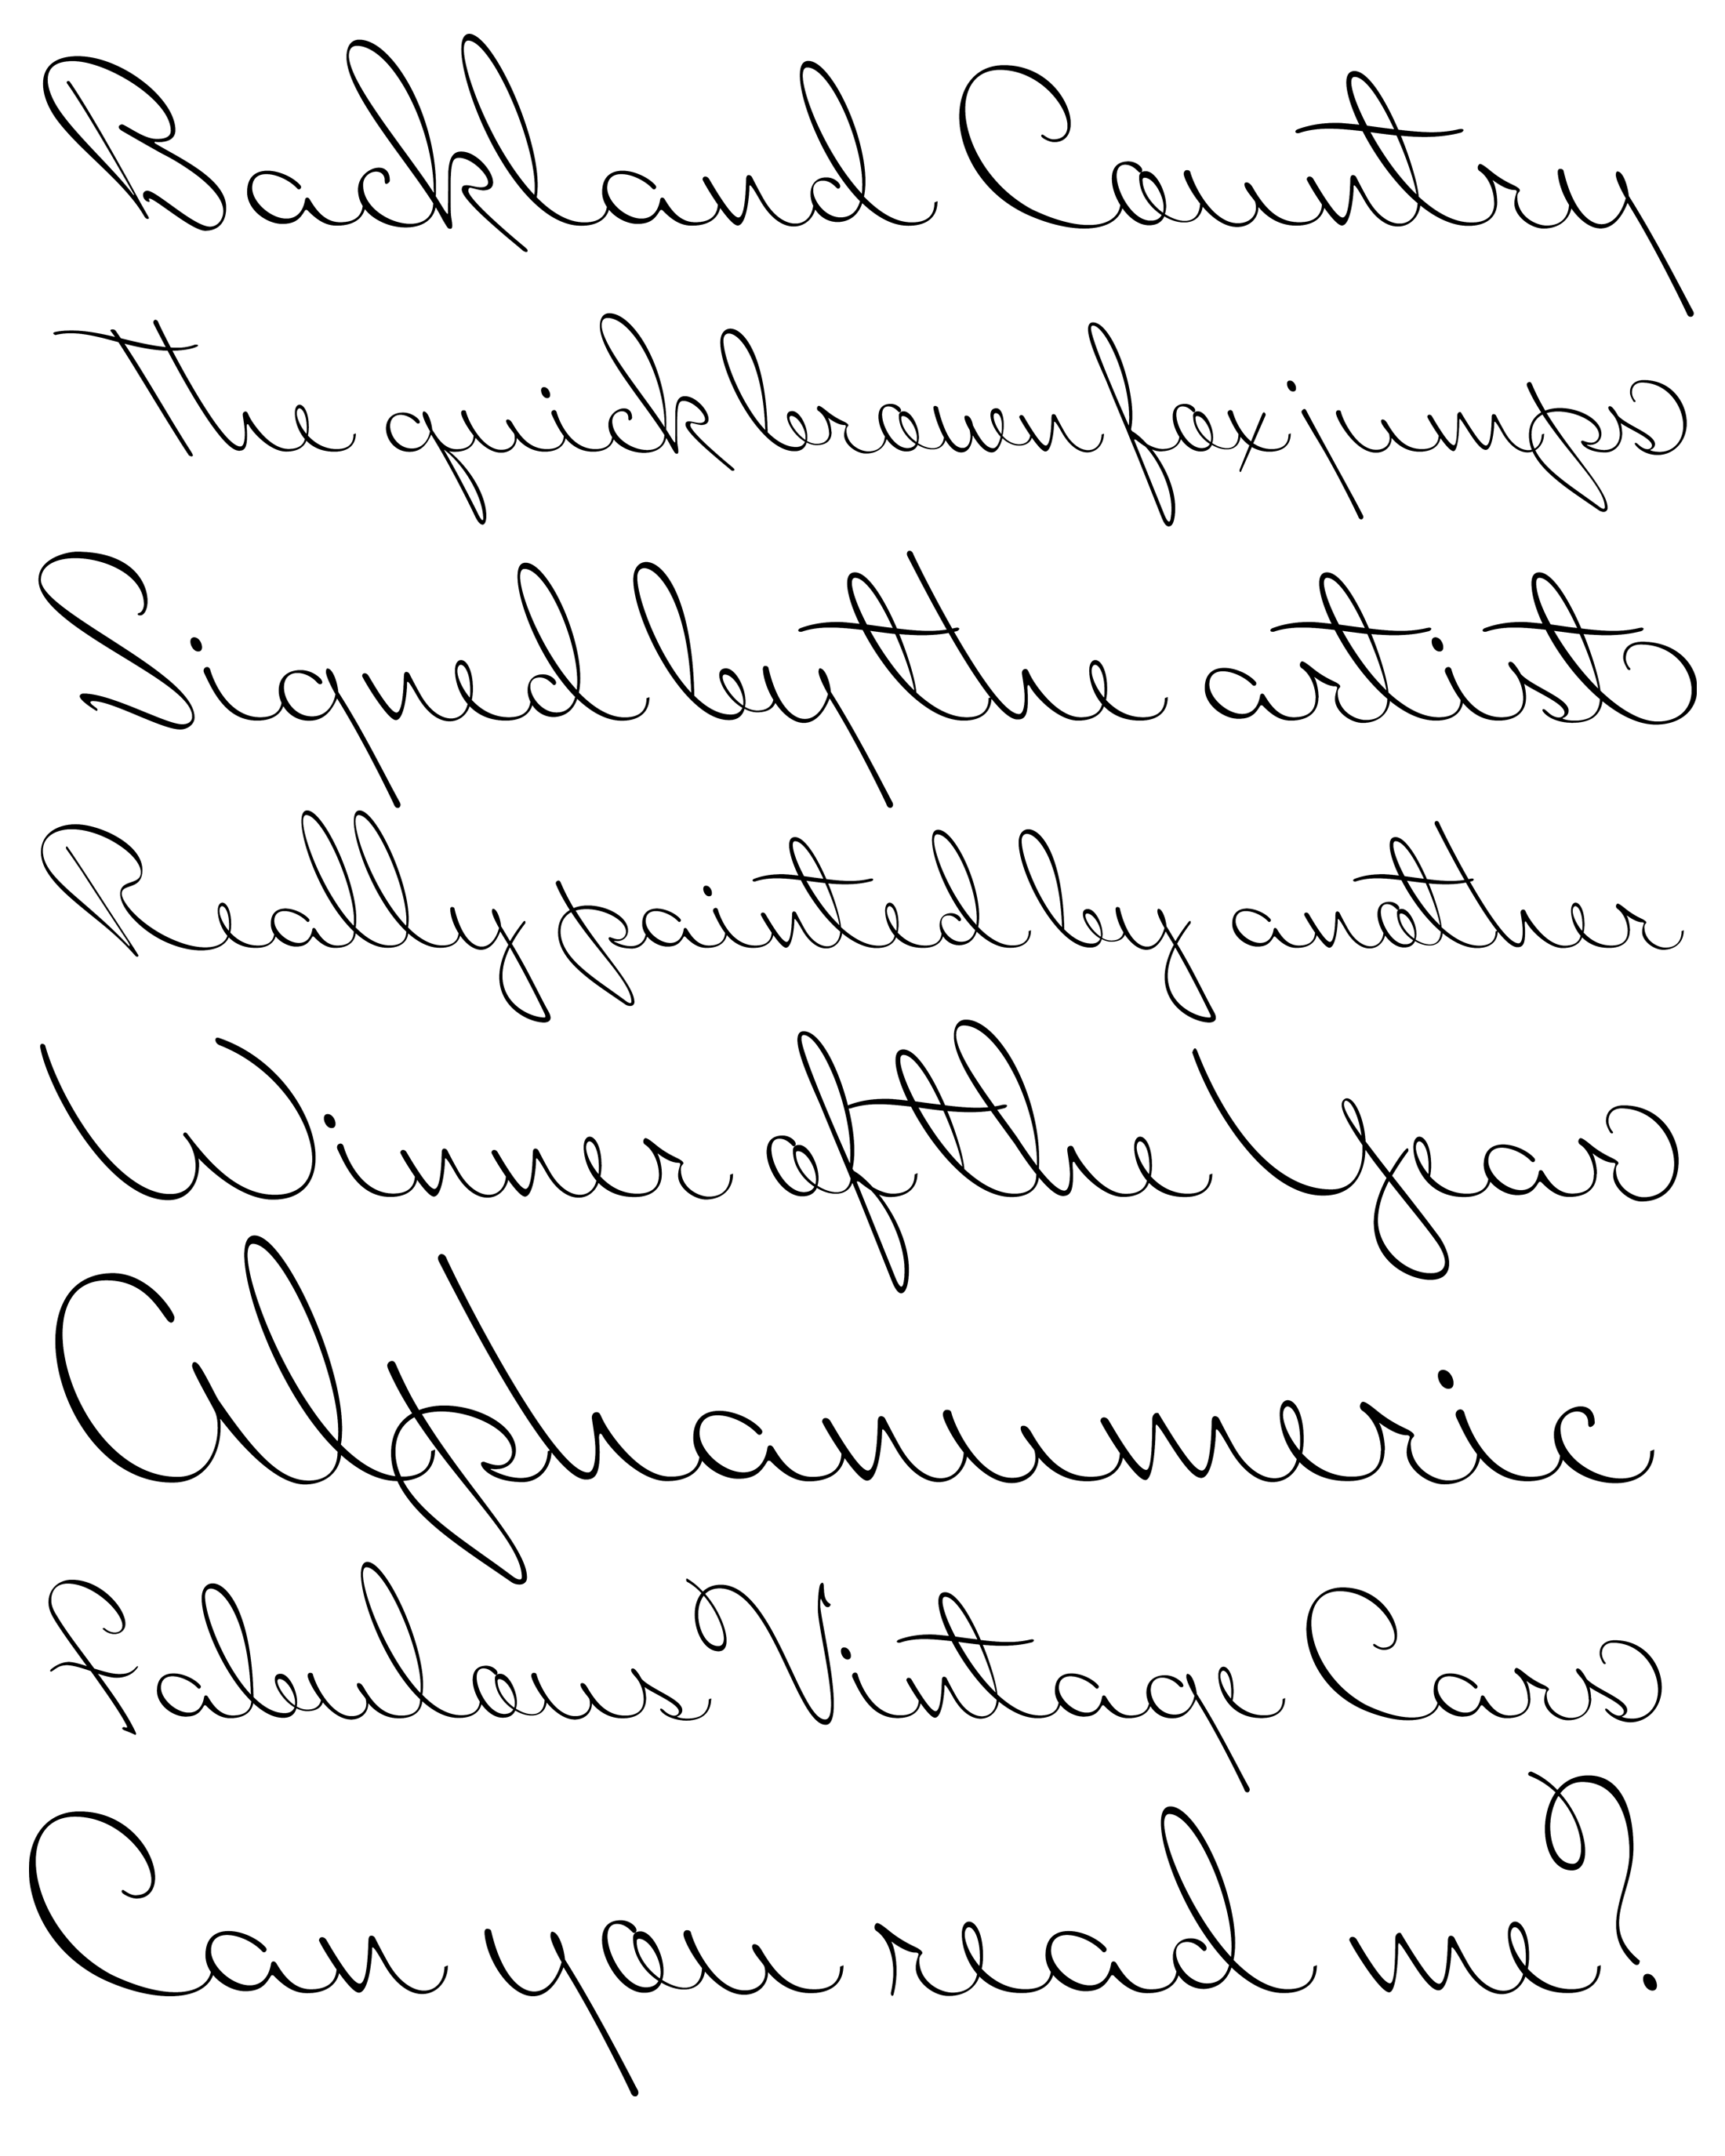 Backland Country
The quick brown fox jumps
Signed by the artist
Really painted by another
Winner of the Year
Alphanumeric
Fabulous Vintage Cars
Can you read me?